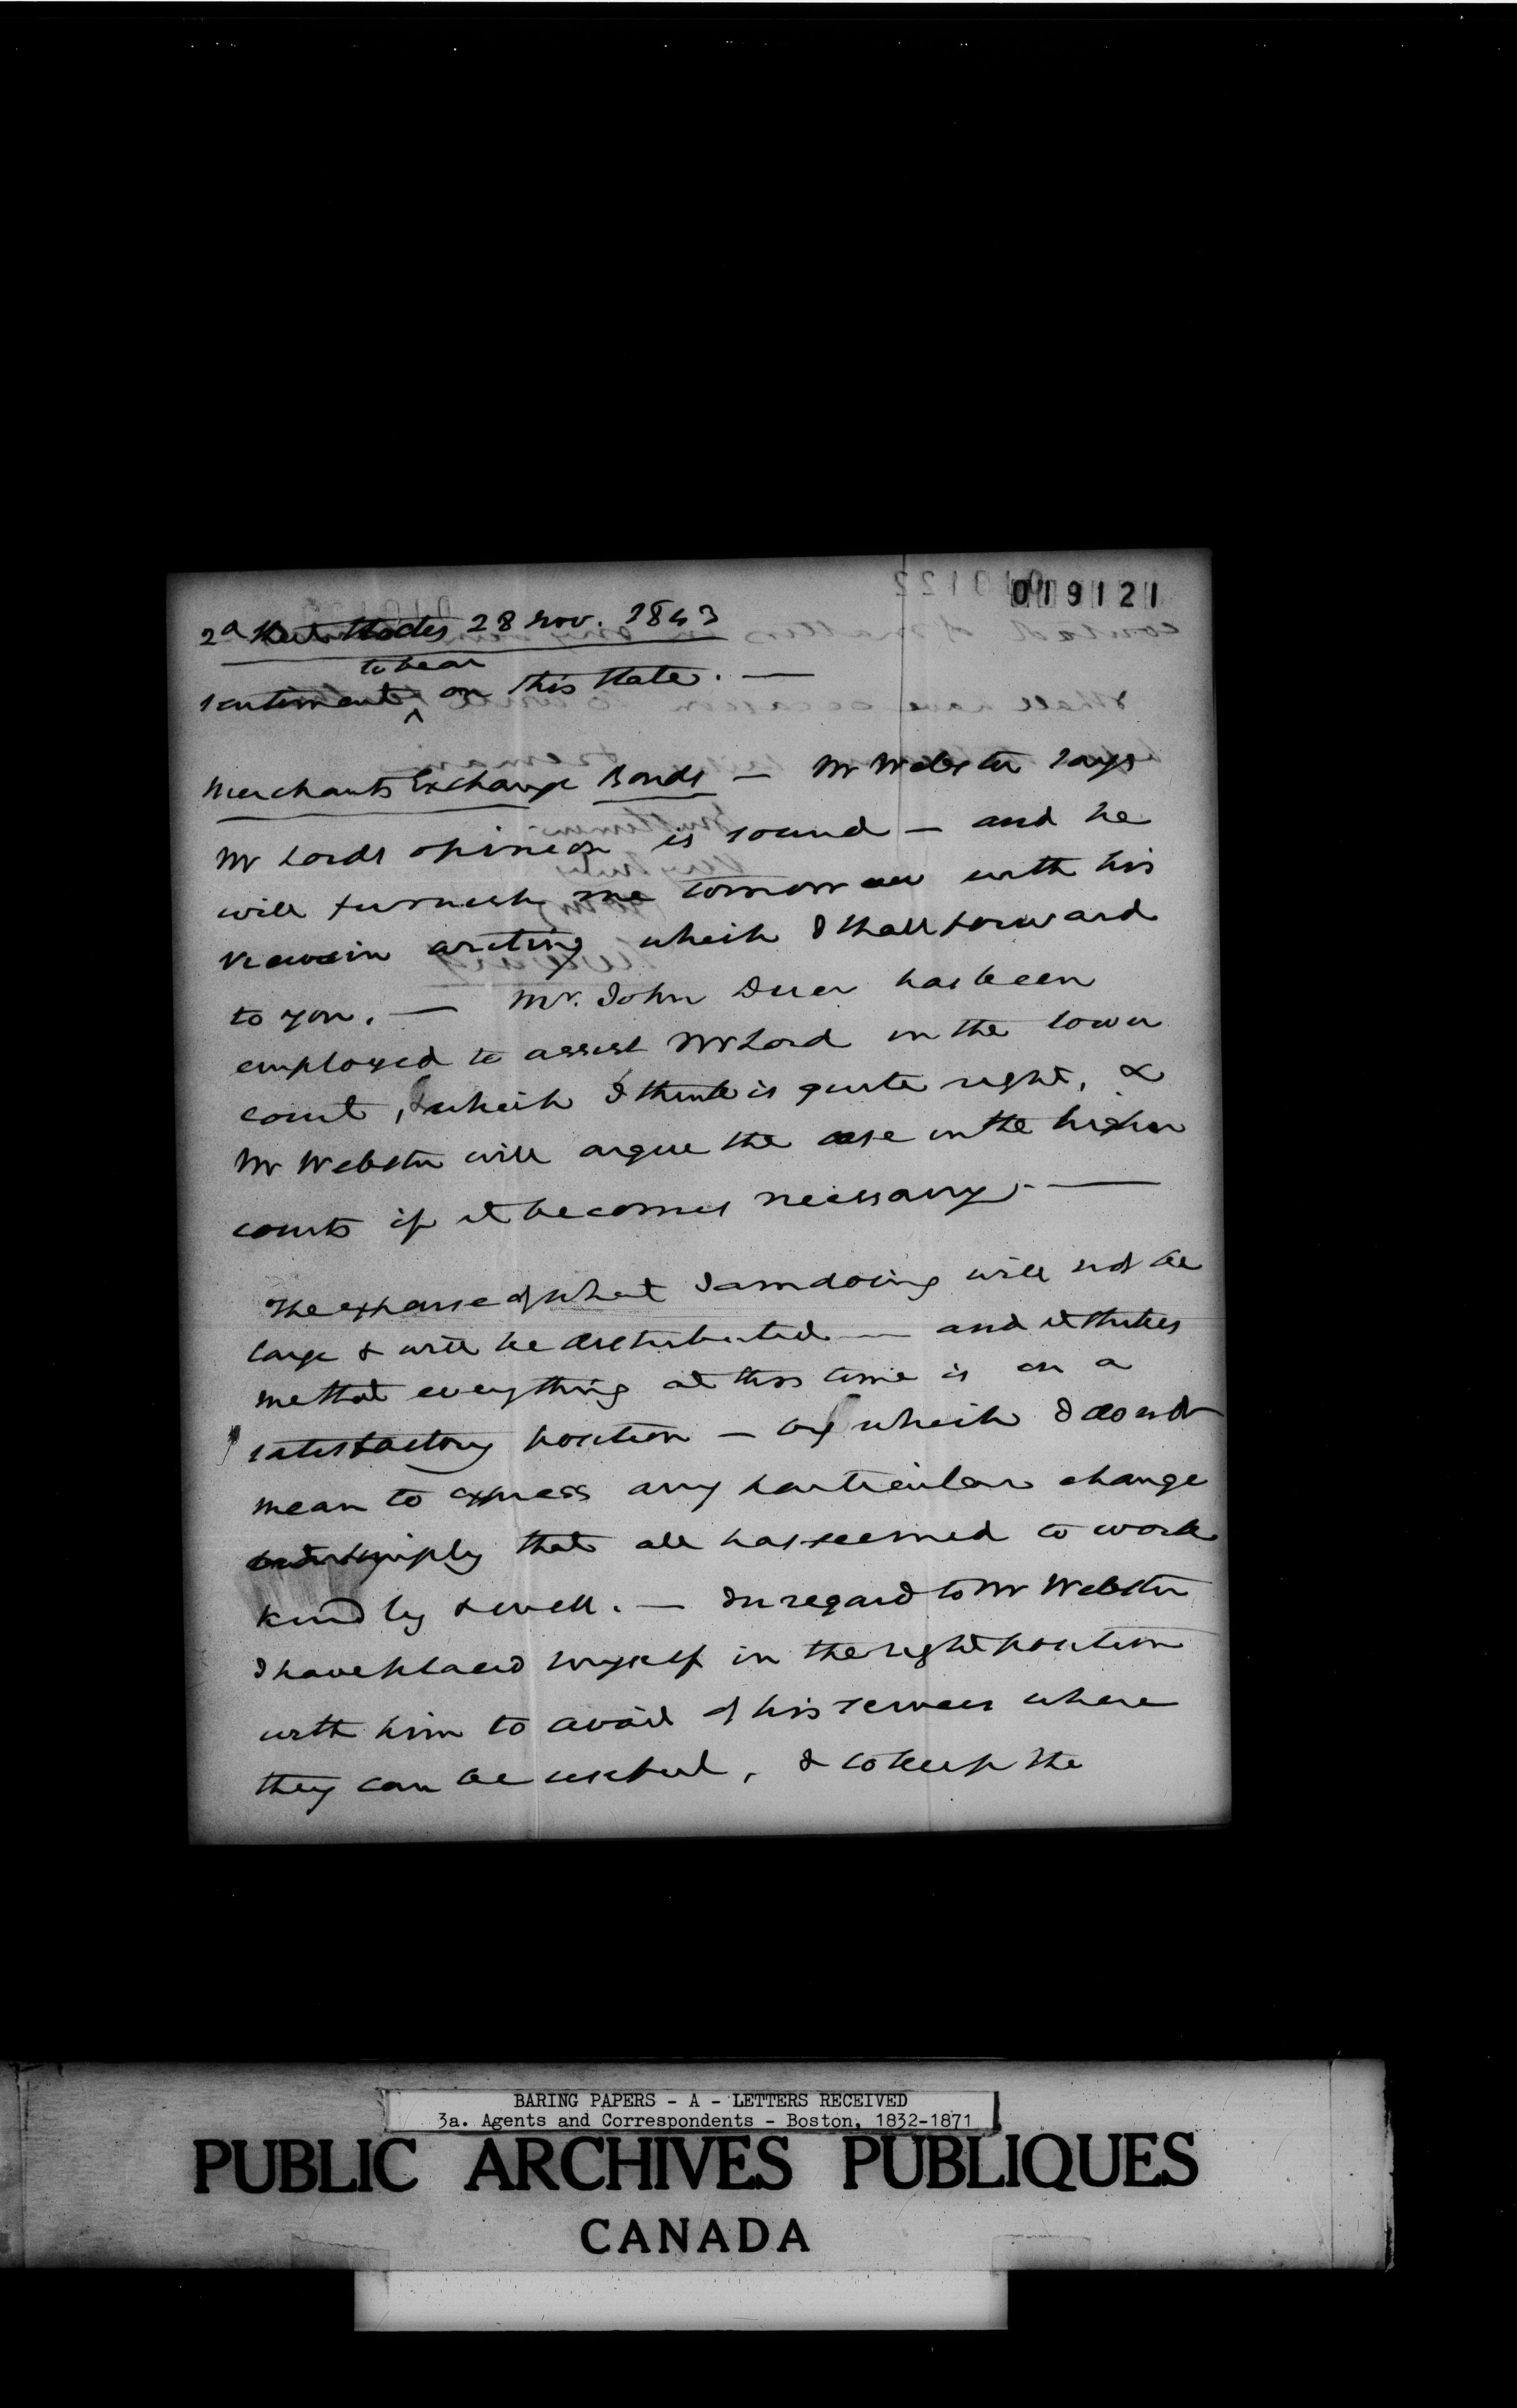 019121
2d 28 Nov. 1843
to bear
sentiment on this State. —
Merchants Exchange Bonds — Mr Webster says
Mr Lords opinion is sound — and he
will furnish me tomorrow with his
views in writing which I shall forward
to you. — Mr. John Duer has been
employed to assist Mr Lord in the lower
court, which I think is quite right, &
Mr Webster will argue the case in the higher
courts if it becomes necessary. —
The expense of what I am doing will not be
large & will be distributed — and it strikes
me that everything at this time is in a
satisfactory position — by which I do not
mean to express any particular change
but simply that all has seemed to work
kindly & well. — In regard to Mr Webster
I have placed myself in the right position
with him to avail of his services where
they can be useful, & to keep the
BARING PAPERS - A - LETTERS RECEIVED
3a. Agents and Correspondents - Boston, 1832-1871
PUBLIC ARCHIVES PUBLIQUES
CANADA